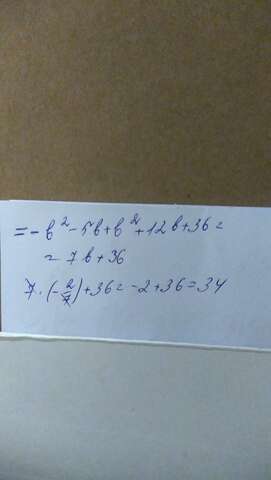 =-b²-5b+b²+12b+36=
=7b+36
7·(-2/7)+36=-2+36=34